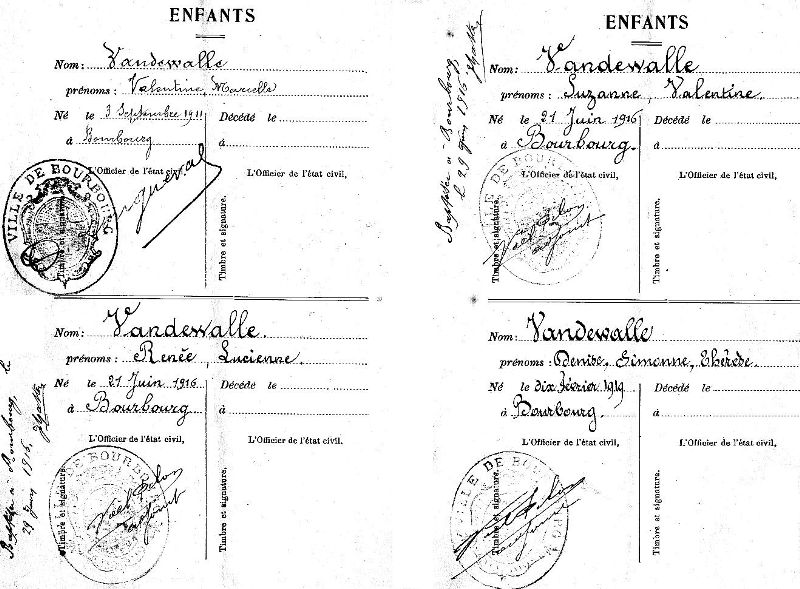 ENFANTS
Nom: Vandewalle
prénoms: Valentine, Marcelle
Né le 3 Septembre 1911 Décédé le
à Bourbourg à
L'Officier de l'état civil, L'Officier de l'état civil,
VILLE DE BOURBOURG
Timbre et signature. Timbre et signature.
Nom: Vandewalle.
prénoms: Renée, Lucienne.
Né le 21 Juin 1916 Décédé le
à Bourbourg à
L'Officier de l'état civil, L'Officier de l'état civil,
VILLE DE BOURBOURG
Timbre et signature. Timbre et signature.
Baptisée à Bourbourg, le
29 Juin 1916.
ENFANTS
Nom: Vandewalle
prénoms: Suzanne, Valentine.
Né le 21 Juin 1916 Décédé le
à Bourbourg. à
L'Officier de l'état civil, L'Officier de l'état civil,
VILLE DE BOURBOURG
Timbre et signature. Timbre et signature.
Baptisée à Bourbourg
le 29 Juin 1916
Nom: Vandewalle
prénoms: Denise, Simonne, Thérèse.
Né le dix février 1919 Décédé le
à Bourbourg. à
L'Officier de l'état civil, L'Officier de l'état civil,
VILLE DE BOURBOURG
Timbre et signature. Timbre et signature.